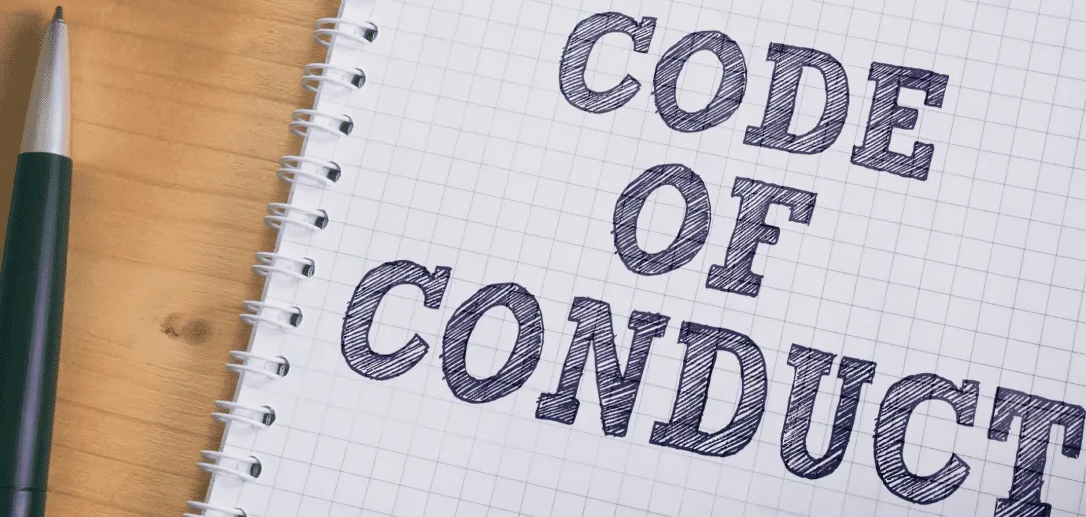 CODE
OF
CONDUCT